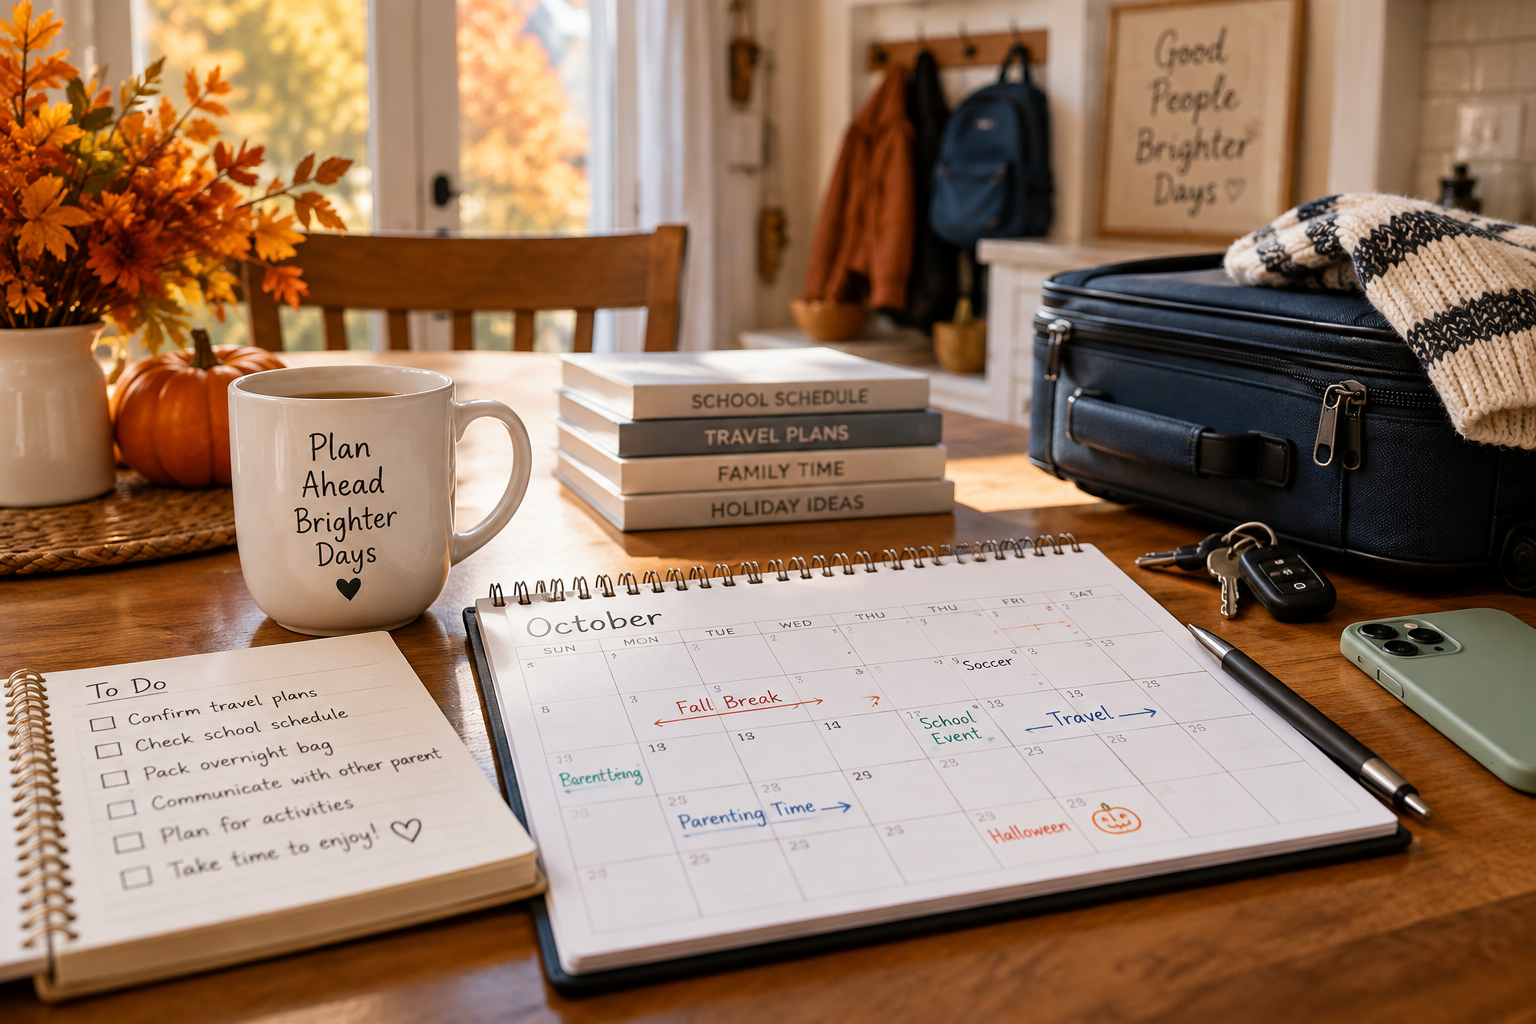 Good
People
Brighter
Days ♡
Plan
Ahead
Brighter
Days
♥
SCHOOL SCHEDULE
TRAVEL PLANS
FAMILY TIME
HOLIDAY IDEAS
To Do
Confirm travel plans
Check school schedule
Pack overnight bag
Communicate with other parent
Plan for activities
Take time to enjoy! ♡
October
SUN MON TUE WED THU THU FRI SAT
Soccer
Fall Break
School
Event
Travel
13 13 14
Parenting Time
29
Halloween